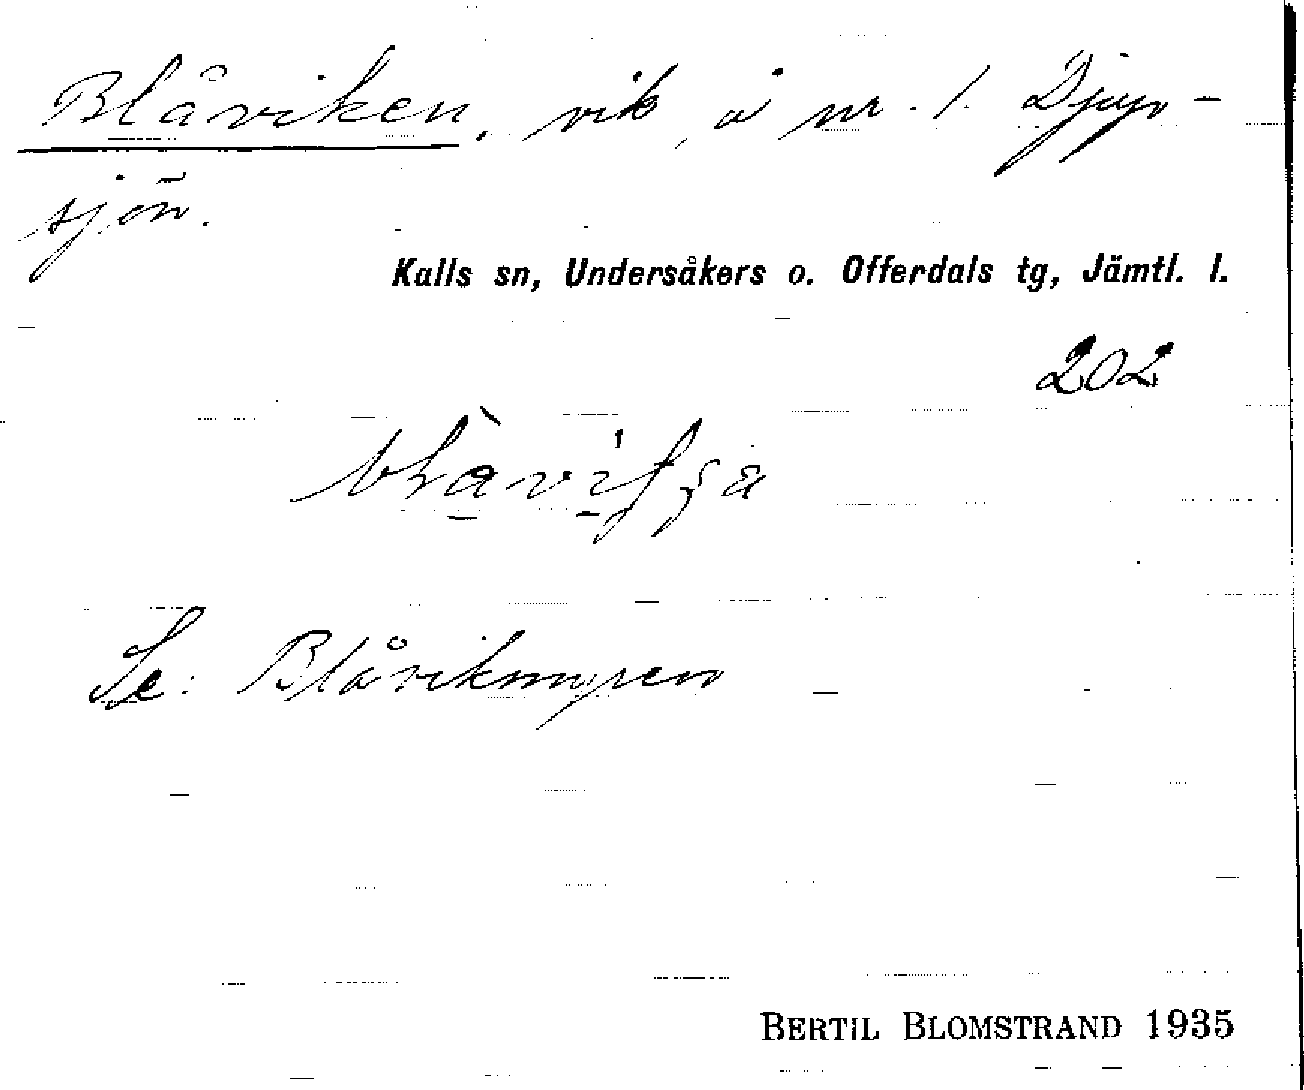 Blåviken, vik, å nr. 1. Djup-
sjön.
Kalls sn, Undersåkers o. Offerdals tg, Jämtl. l.
202
Se: Blåvikmyren
BERTIL BLOMSTRAND 1935